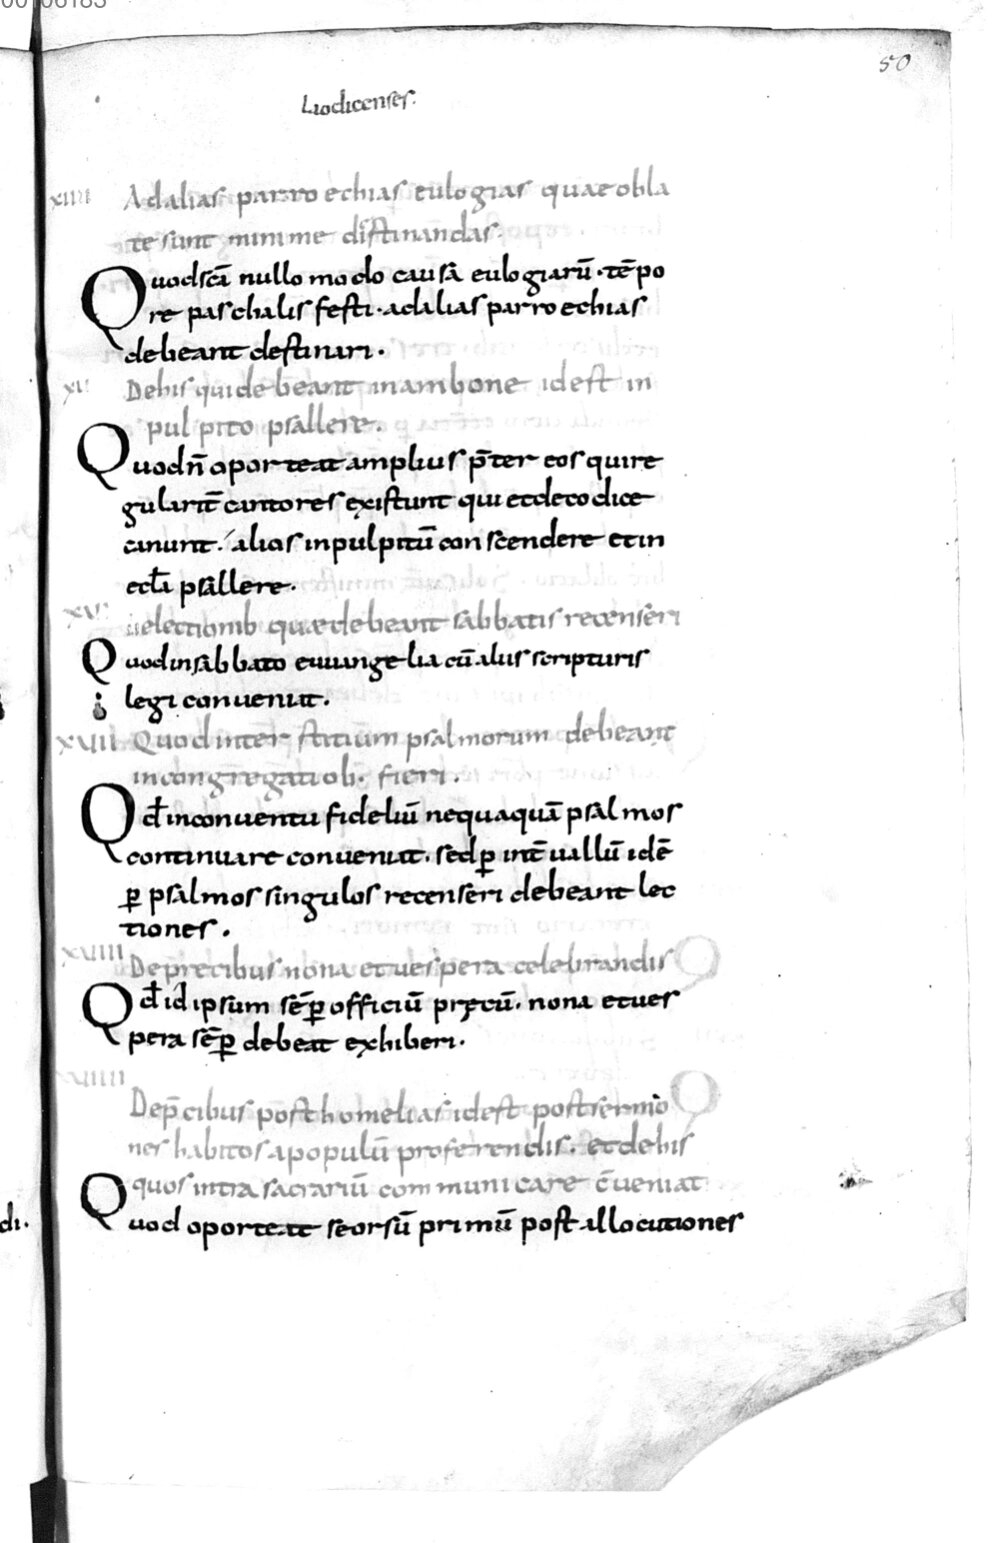 50
Laodicenses.
XIIII Ad alias parroechias eulogias quae obla
te sunt minime distinandas.
Quod scā nullo modo causā eulogiarū. tēpo
re paschalis festi. ad alias parroechias
debeant destinari.
XV De his qui debeant in ambone id est in
pulpito psallere.
Quod n̄ oporteat amplius p̄ter eos qui re
gularit̄ cantores existunt qui et de codice
canunt. alios in pulpitū conscendere et in
eccla psallere.
XVI De lectionib quae debeant sabbatis recenseri
Quod in sabbato euuangelia cū aliis scripturis
legi conueniat.
XVII Quod inter stitium psalmorum debeant
in congregatiōb. fieri.
Qđ in conuentu fideliū nequaquā psalmos
continuare conueniat. sed ꝑ int̄uallū idē
ꝑ psalmos singulos recenseri debeant lec
tiones.
XVIII De precibus nona et uespera celebrandis
Qđ id ipsum sēꝑ officiū pręcū. nona et ues
pera sēꝑ debeat exhiberi.
XVIIII
De p̄cibus post homelias id est post sermo
nes habitos a populū proferendis. et de his
quos intra sacrariū communicare c̄ueniat
Quod oporteat seorsū primū post allocutiones
di.